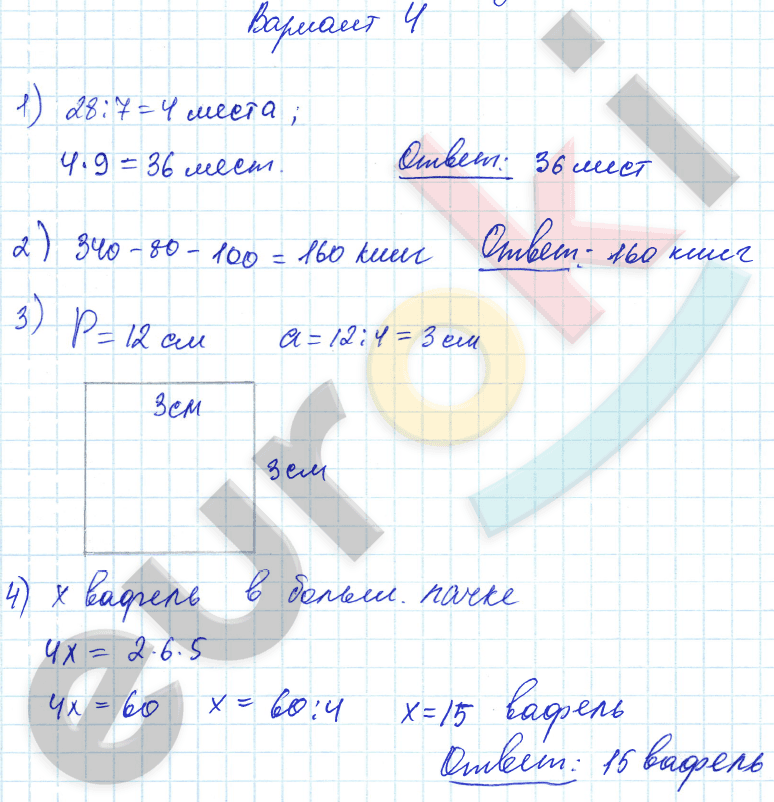 Вариант 4
1) 28:7=4 места;
4·9=36 мест. Ответ: 36 мест
2) 340-80-100=160 книг Ответ: 160 книг
3) P=12 см a=12:4=3 см
3см
3см
4) x вафель в больш. пачке
4x = 2·6·5
4x = 60 x = 60:4 x=15 вафель
Ответ: 15 вафель
euroki